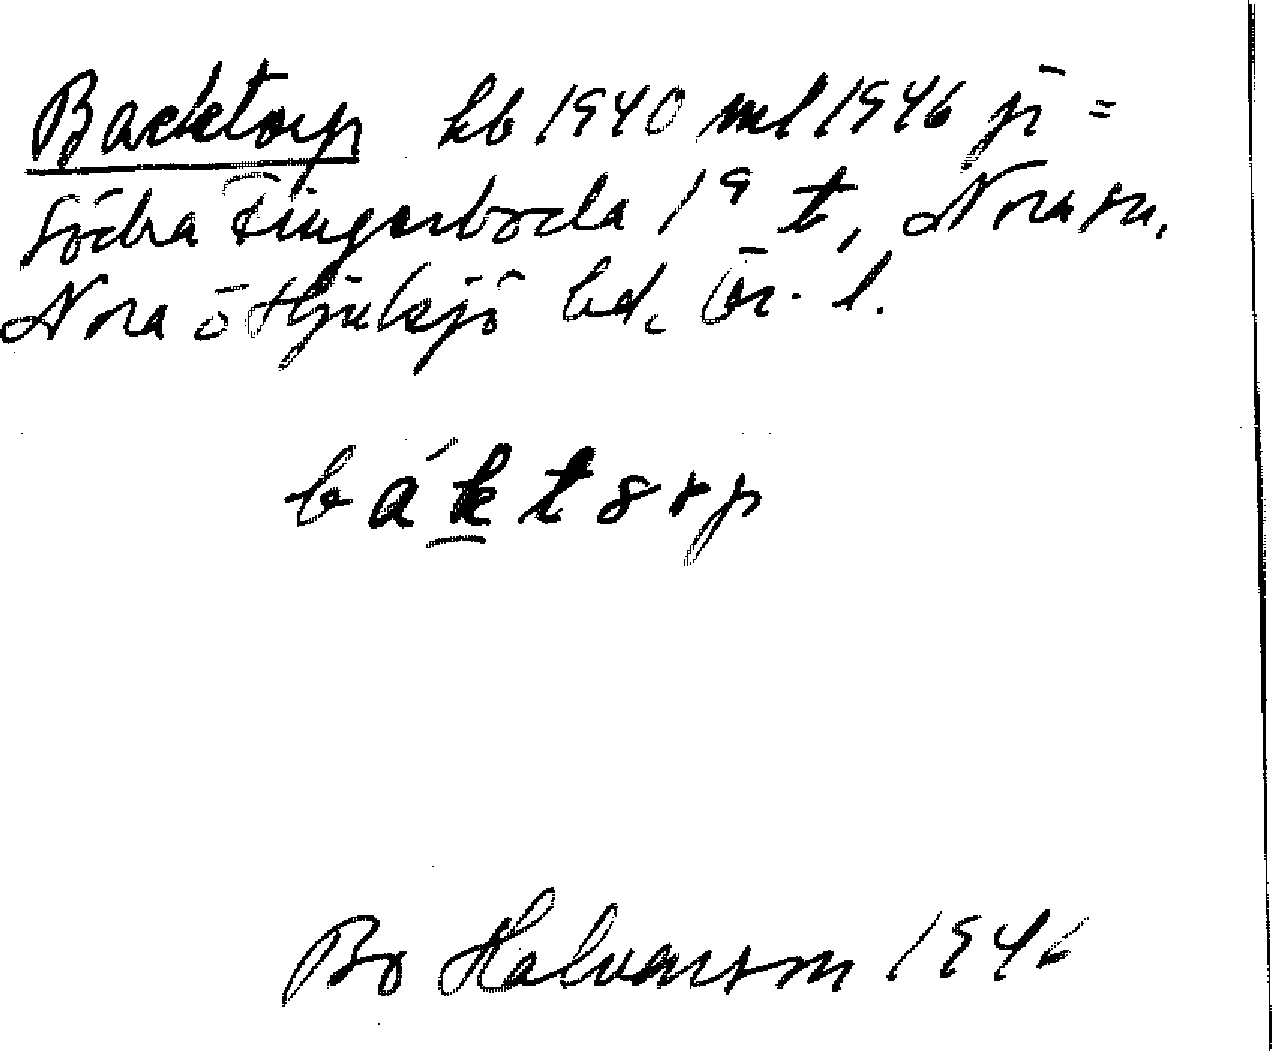 Backtorp hb 1940 ml 1946 på =
Södra Fingerboda 1⁹ t, Nora sn,
Nora o Hjulsjö bd. Ör. l.
báktorp
Bo Halvarson 1946